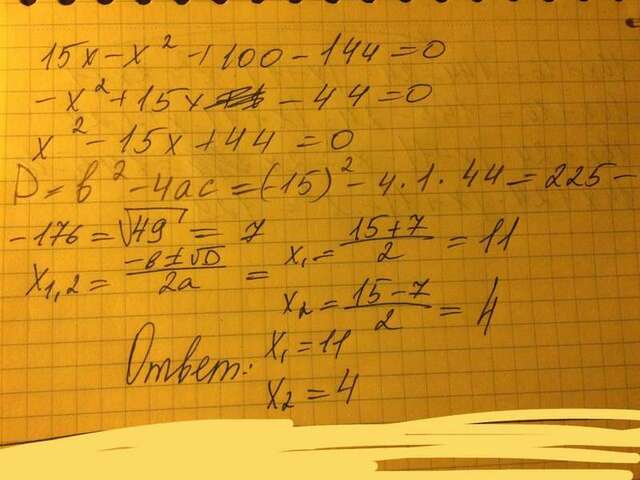 15x - x² + 100 - 144 = 0
-x² + 15x - 44 = 0
x² - 15x + 44 = 0
D = b² - 4ac = (-15)² - 4·1·44 = 225 -
-176 = √49 = 7
x₁,₂ = (-b ± √D)/2a = x₁ = (15+7)/2 = 11
x₂ = (15-7)/2 = 4
Ответ: x₁ = 11
x₂ = 4